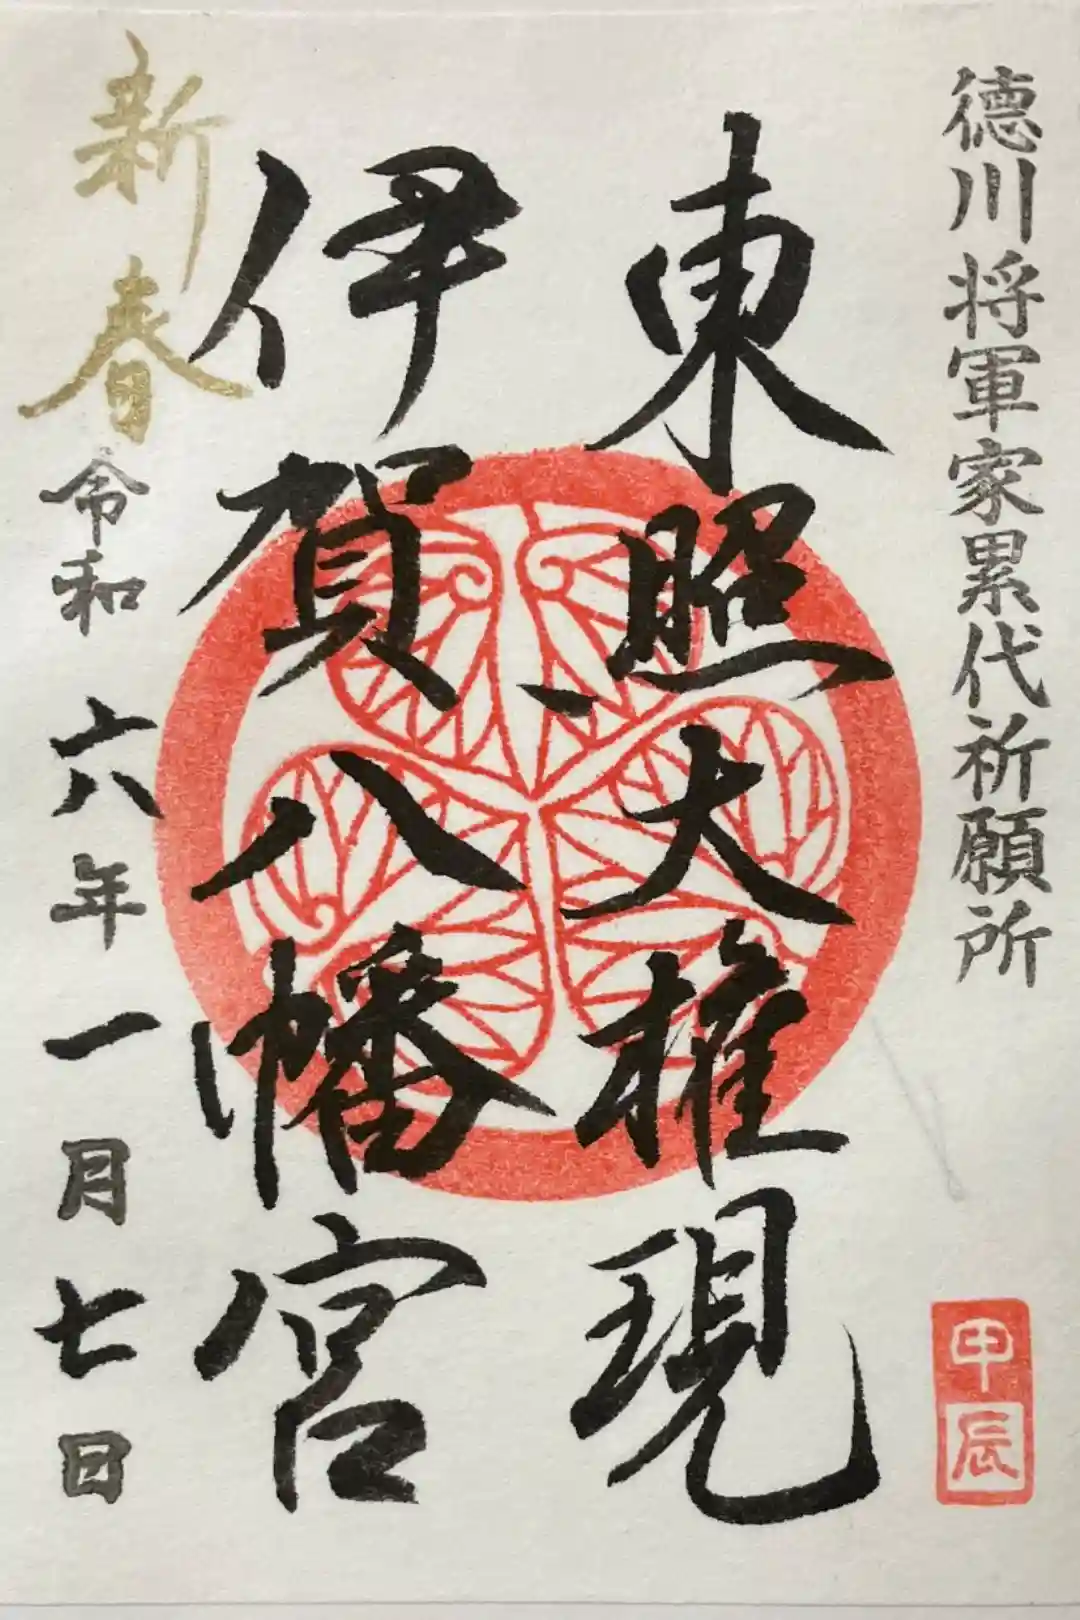 徳川将軍家累代祈願所
東照大権現
伊賀八幡宮
新春
令和六年一月七日
甲辰